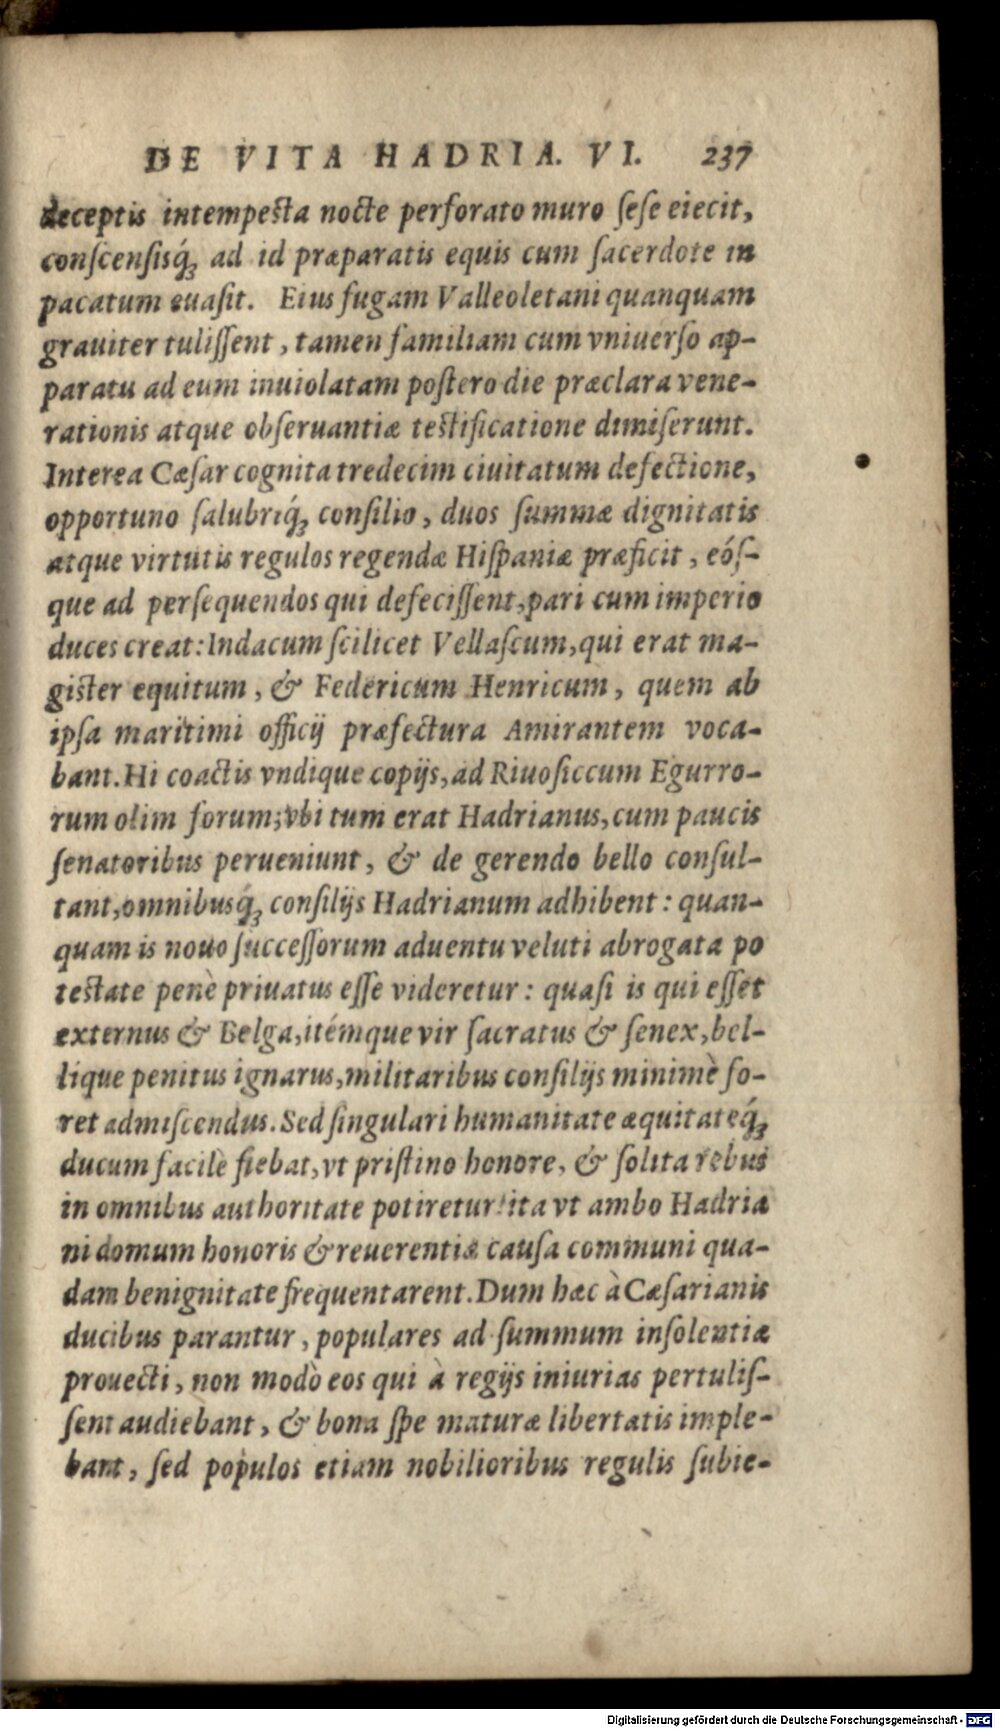 DE VITA HADRIA. VI. 237
deceptis intempesta nocte perforato muro ſeſe eiecit,
conſcenſisq́ꝫ ad id præparatis equis cum ſacerdote in
pacatum euaſit. Eius fugam Valleoletani quanquam
grauiter tuliſſent, tamen familiam cum vniuerſo ap-
paratu ad eum inuiolatam poſtero die præclara vene-
rationis atque obſeruantiæ teſtificatione dimiſerunt.
Interea Cæſar cognita tredecim ciuitatum defectione,
opportuno ſalubriq́ꝫ conſilio, duos ſummæ dignitatis
atque virtutis regulos regendæ Hiſpaniæ præficit, eóſ-
que ad perſequendos qui defeciſſent, pari cum imperio
duces creat: Indacum ſcilicet Vellaſcum, qui erat ma-
giſter equitum, & Federicum Henricum, quem ab
ipſa maritimi officij præfectura Amirantem voca-
bant. Hi coactis vndique copijs, ad Riuoſiccum Egurro-
rum olim forum; vbi tum erat Hadrianus, cum paucis
ſenatoribus perueniunt, & de gerendo bello conſul-
tant, omnibusq́ꝫ conſilijs Hadrianum adhibent: quan-
quam is nouo ſucceſſorum aduentu veluti abrogata po
teſtate penè priuatus eſſe videretur: quaſi is qui eſſet
externus & Belga, itémque vir ſacratus & ſenex, bel-
lique penitus ignarus, militaribus conſilijs minimè fo-
ret admiſcendus. Sed ſingulari humanitate æquitateq́ꝫ
ducum facilè fiebat, vt priſtino honore, & ſolita rebus
in omnibus authoritate potiretur: ita vt ambo Hadria
ni domum honoris & reuerentiæ cauſa communi qua-
dam benignitate frequentarent. Dum hæc à Cæſarianis
ducibus parantur, populares ad ſummum inſolentiæ
prouecti, non modò eos qui à regijs iniurias pertuliſ-
ſent audiebant, & bona ſpe maturæ libertatis imple-
bant, ſed populos etiam nobilioribus regulis ſubie-
Digitalisierung gefördert durch die Deutsche Forschungsgemeinschaft - DFG